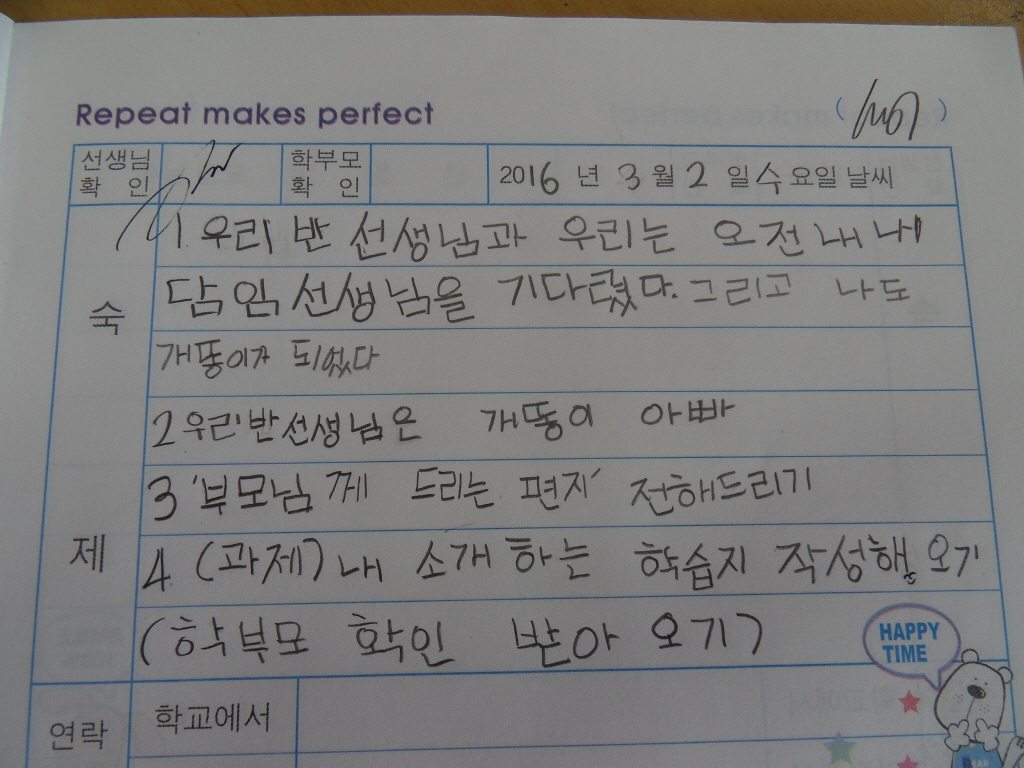 Repeat makes perfect
선생님 확 인 학부모 확 인 2016 년 3 월 2 일 수 요일 날씨
1 우리 반 선생님과 우리는 오전내내
숙
담임 선생님을 기다렸다. 그리고 나도
개똥이가 되었다
2 우리반선생님은 개똥이 아빠
3 '부모님께 드리는 편지' 전해드리기
제
4 (과제) 내 소개 하는 학습지 작성해 오기
(학부모 확인 받아 오기)
HAPPY
TIME
연락 학교에서